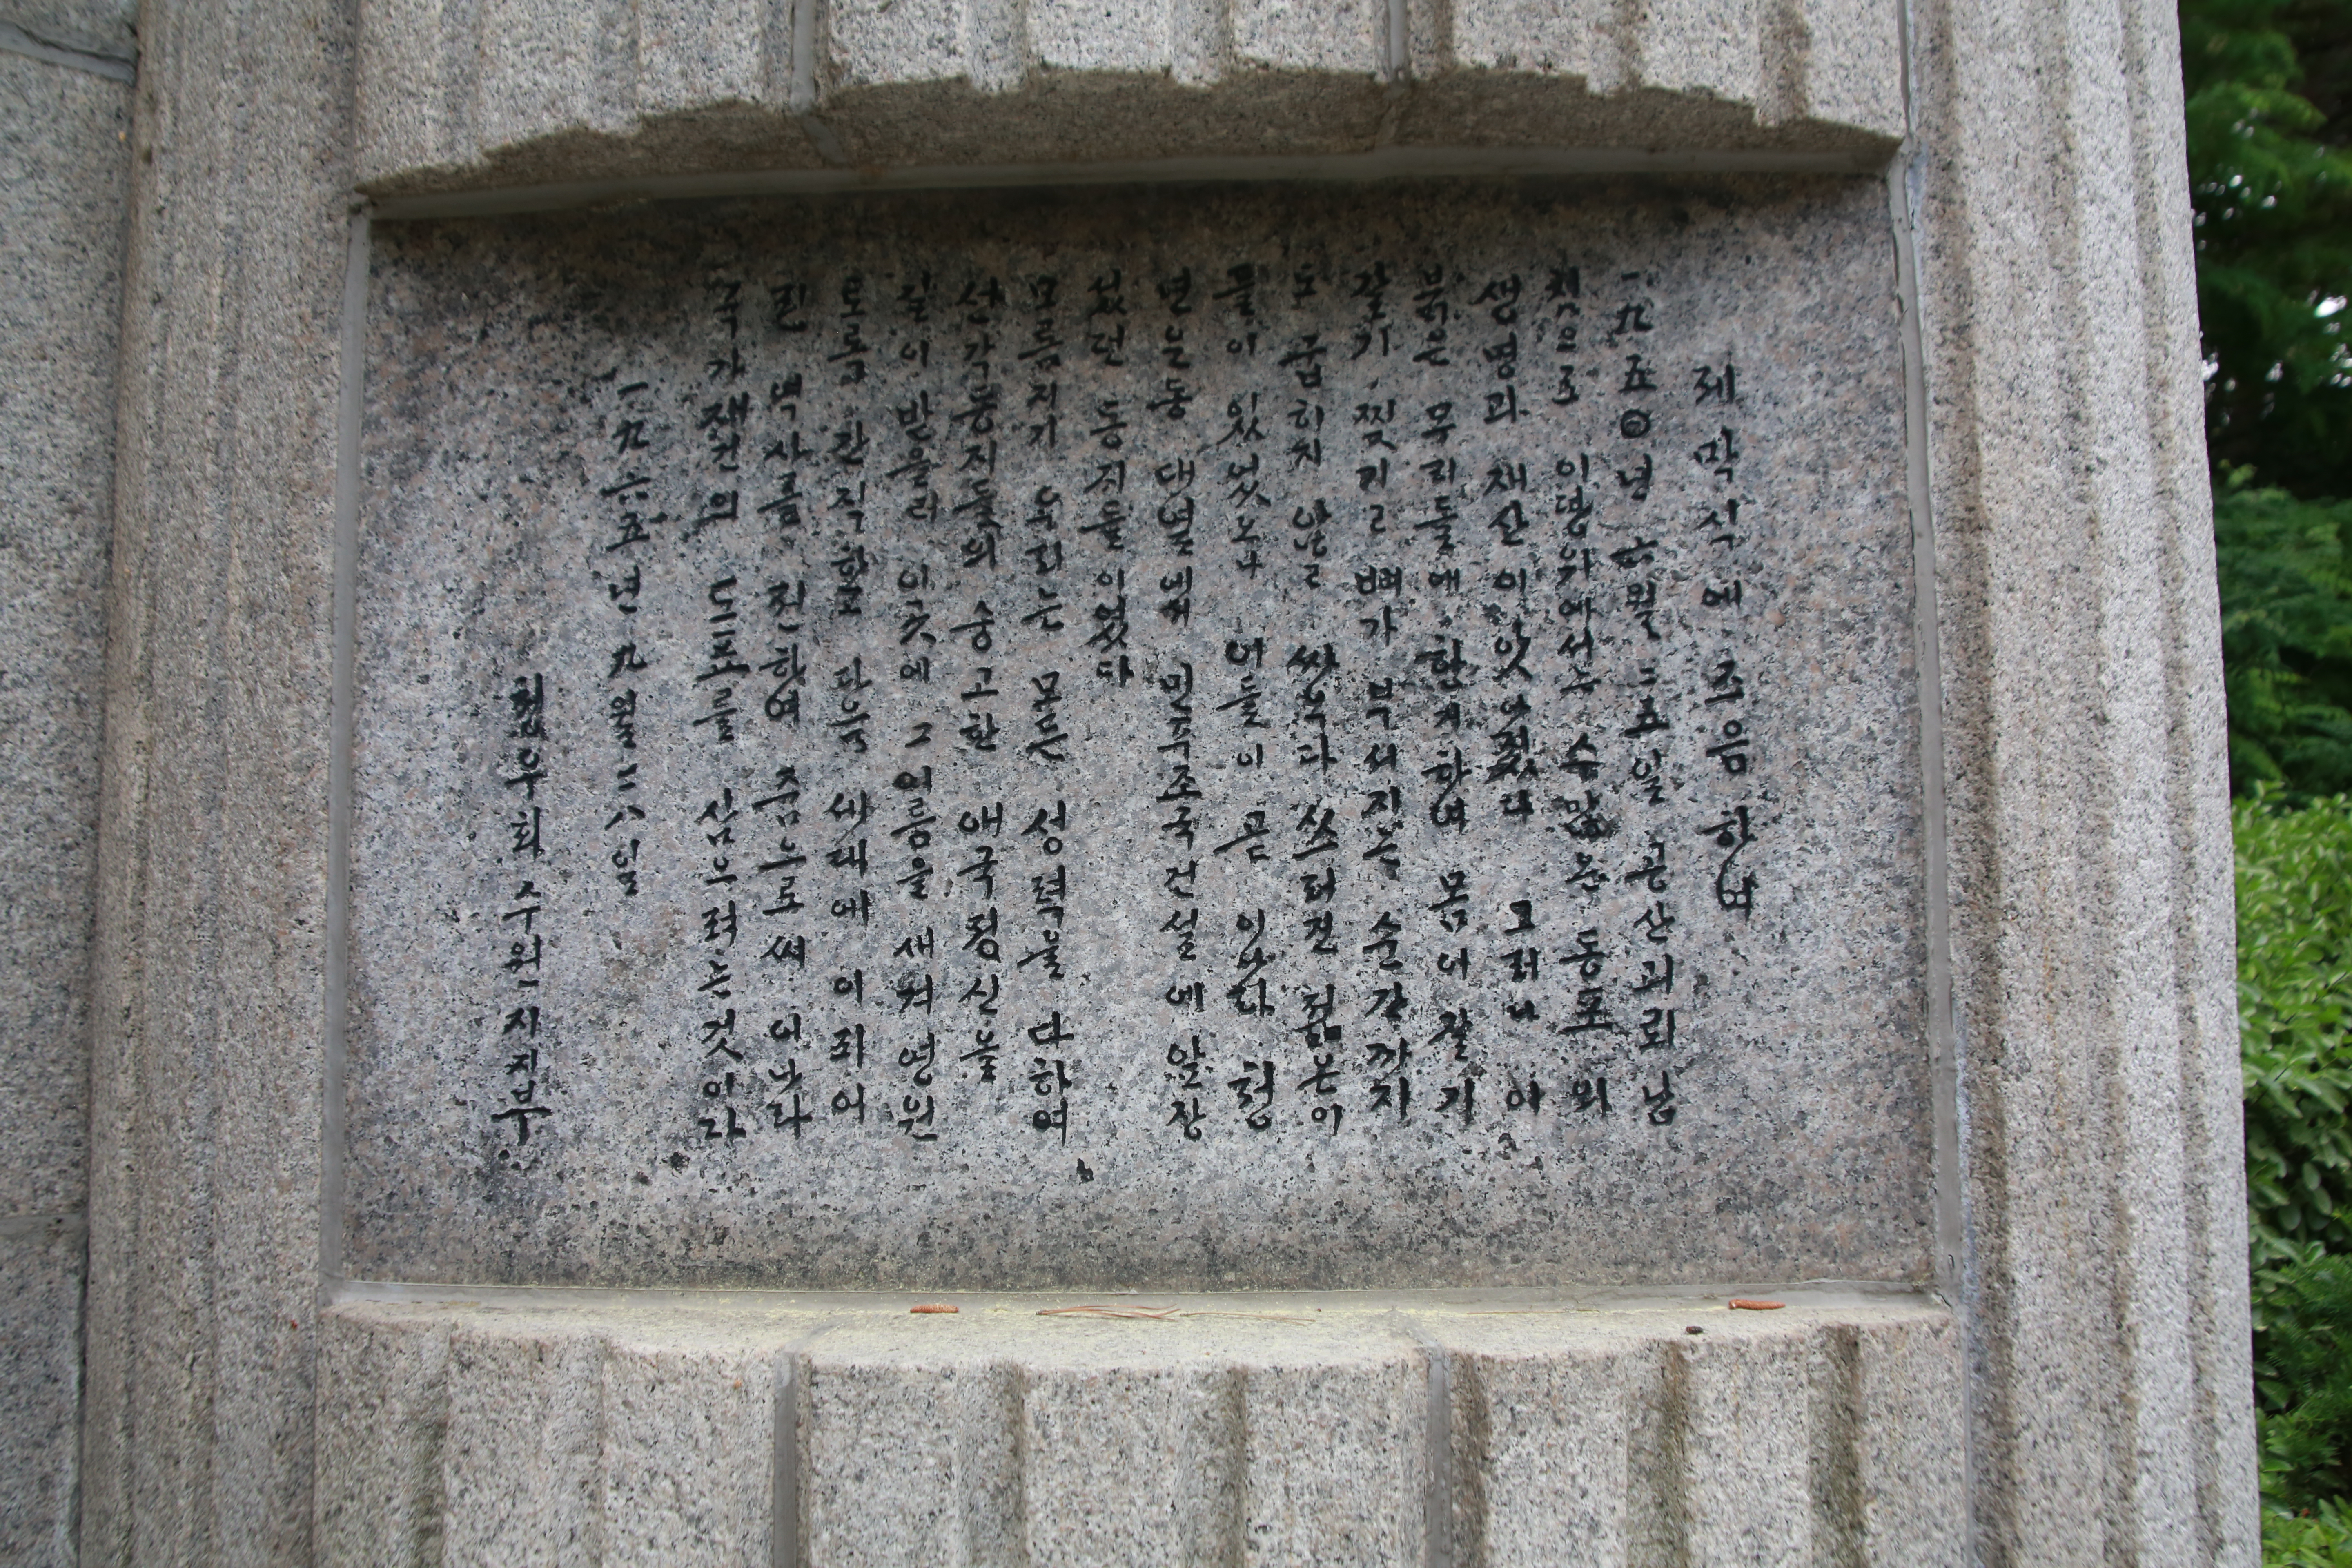 제막식에 즈음하여
一九五○년 六월 二五일 공산괴뢰 남
침으로 이땅위에서는 수많은 동포의
생명과 재산이 앗아졌다 그러나 이
붉은 무리들에 한거하여 몸이 갈기
갈기 찢기고 뼈가 부서지는 순간까지
도 굽히지 않고 싸우다 쓰러진 젊은이
들이 있었노니 이들이 곧 이땅 청
년운동 대열에서 민주조국건설에 앞장
섰던 동지들이었다
모름지기 우리는 모든 성력을 다하여
선각동지들의 숭고한 애국정신을
길이 받들려 이곳에 그 이름을 새겨 영원
토록 간직하고 다음 세대에 이 죄어
린 벽사를 전하여 줌으로써 이 나라
국가재건의 도표를 삼으려는 것이다
一九六五년 九월 二八일
청우회 수원시지부